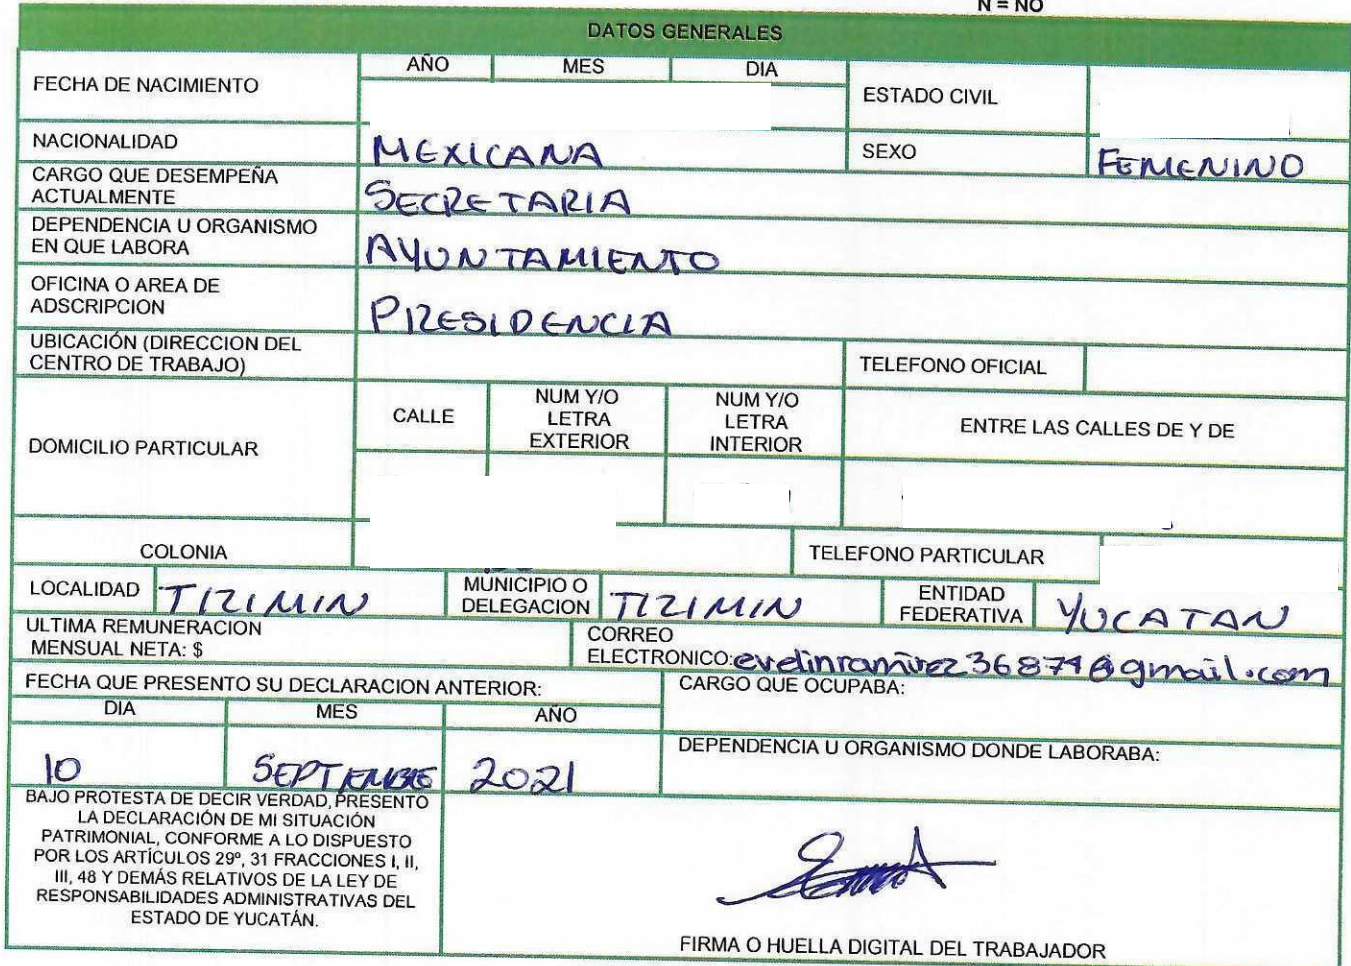 N = NO
DATOS GENERALES
FECHA DE NACIMIENTO
AÑO MES DIA
ESTADO CIVIL
NACIONALIDAD MEXICANA SEXO FEMENINO
CARGO QUE DESEMPEÑA
ACTUALMENTE SECRETARIA
DEPENDENCIA U ORGANISMO
EN QUE LABORA AYUNTAMIENTO
OFICINA O AREA DE
ADSCRIPCION PRESIDENCIA
UBICACIÓN (DIRECCION DEL
CENTRO DE TRABAJO) TELEFONO OFICIAL
DOMICILIO PARTICULAR
CALLE
NUM Y/O
LETRA
EXTERIOR
NUM Y/O
LETRA
INTERIOR
ENTRE LAS CALLES DE Y DE
COLONIA TELEFONO PARTICULAR
LOCALIDAD TIZIMIN
MUNICIPIO O
DELEGACION TIZIMIN
ENTIDAD
FEDERATIVA YUCATAN
ULTIMA REMUNERACION
MENSUAL NETA: $
CORREO
ELECTRONICO: evelinramirez36874@gmail.com
FECHA QUE PRESENTO SU DECLARACION ANTERIOR:
CARGO QUE OCUPABA:
DIA MES AÑO
10 SEPTIEMBRE 2021
DEPENDENCIA U ORGANISMO DONDE LABORABA:
BAJO PROTESTA DE DECIR VERDAD, PRESENTO
LA DECLARACIÓN DE MI SITUACIÓN
PATRIMONIAL, CONFORME A LO DISPUESTO
POR LOS ARTÍCULOS 29º, 31 FRACCIONES I, II,
III, 48 Y DEMÁS RELATIVOS DE LA LEY DE
RESPONSABILIDADES ADMINISTRATIVAS DEL
ESTADO DE YUCATÁN.
FIRMA O HUELLA DIGITAL DEL TRABAJADOR